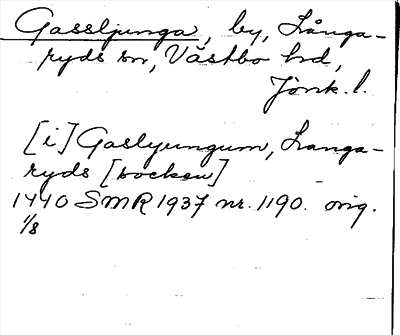 Gassljunga, by, Långa-
ryds sn, Västbo hd,
Jönk. l.
[i] Gaslyungum, Langa-
ryds [socken]
1440 SMR 1937 nr. 1190. orig.
1/8